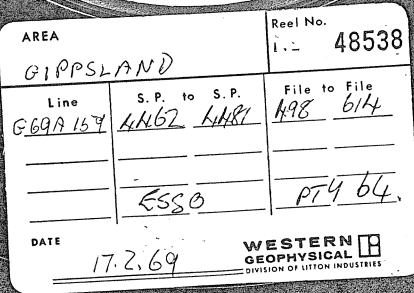 AREA
GIPPSLAND
Reel No.
48538
Line
S. P. to S. P.
File to File
G69A 159 4462 4481 498 614
ESSO PTY 64.
DATE
17.2.69
WESTERN
GEOPHYSICAL
DIVISION OF LITTON INDUSTRIES